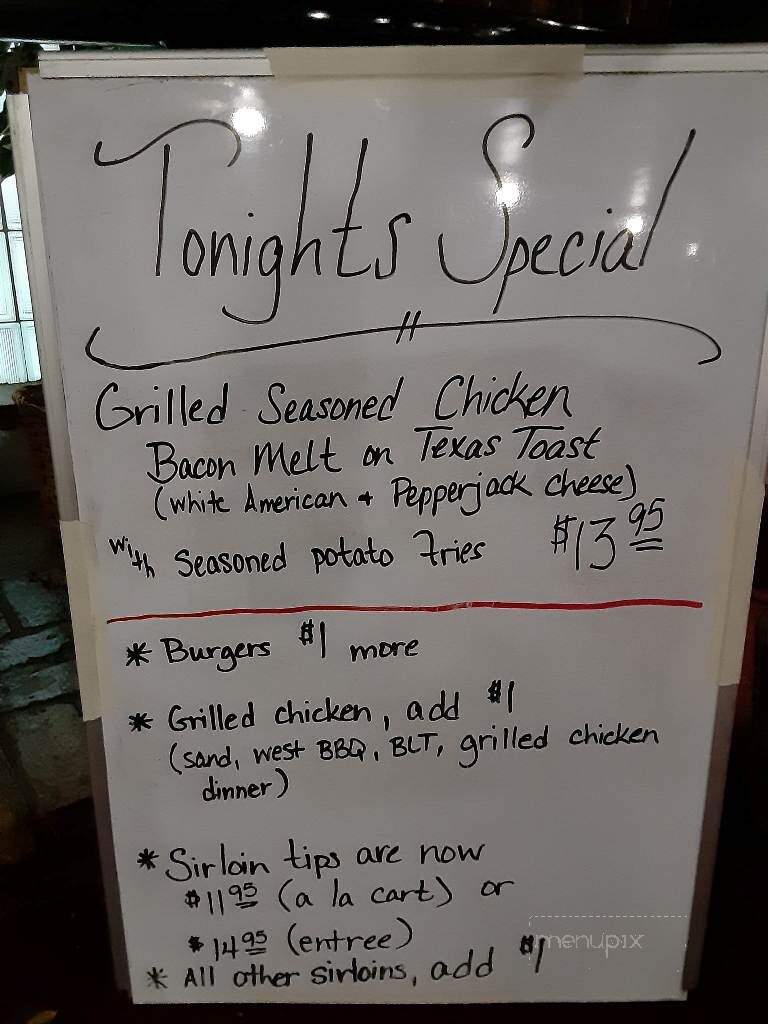 Tonights Special
Grilled Seasoned Chicken
Bacon Melt on Texas Toast
(white American + Pepperjack cheese)
with seasoned potato fries $13.95
* Burgers $1 more
* Grilled chicken, add $1
(sand, west BBQ, BLT, grilled chicken
dinner)
* Sirloin tips are now
$11.95 (a la cart) or
$14.95 (entree)
menupix
* All other sirloins, add $1